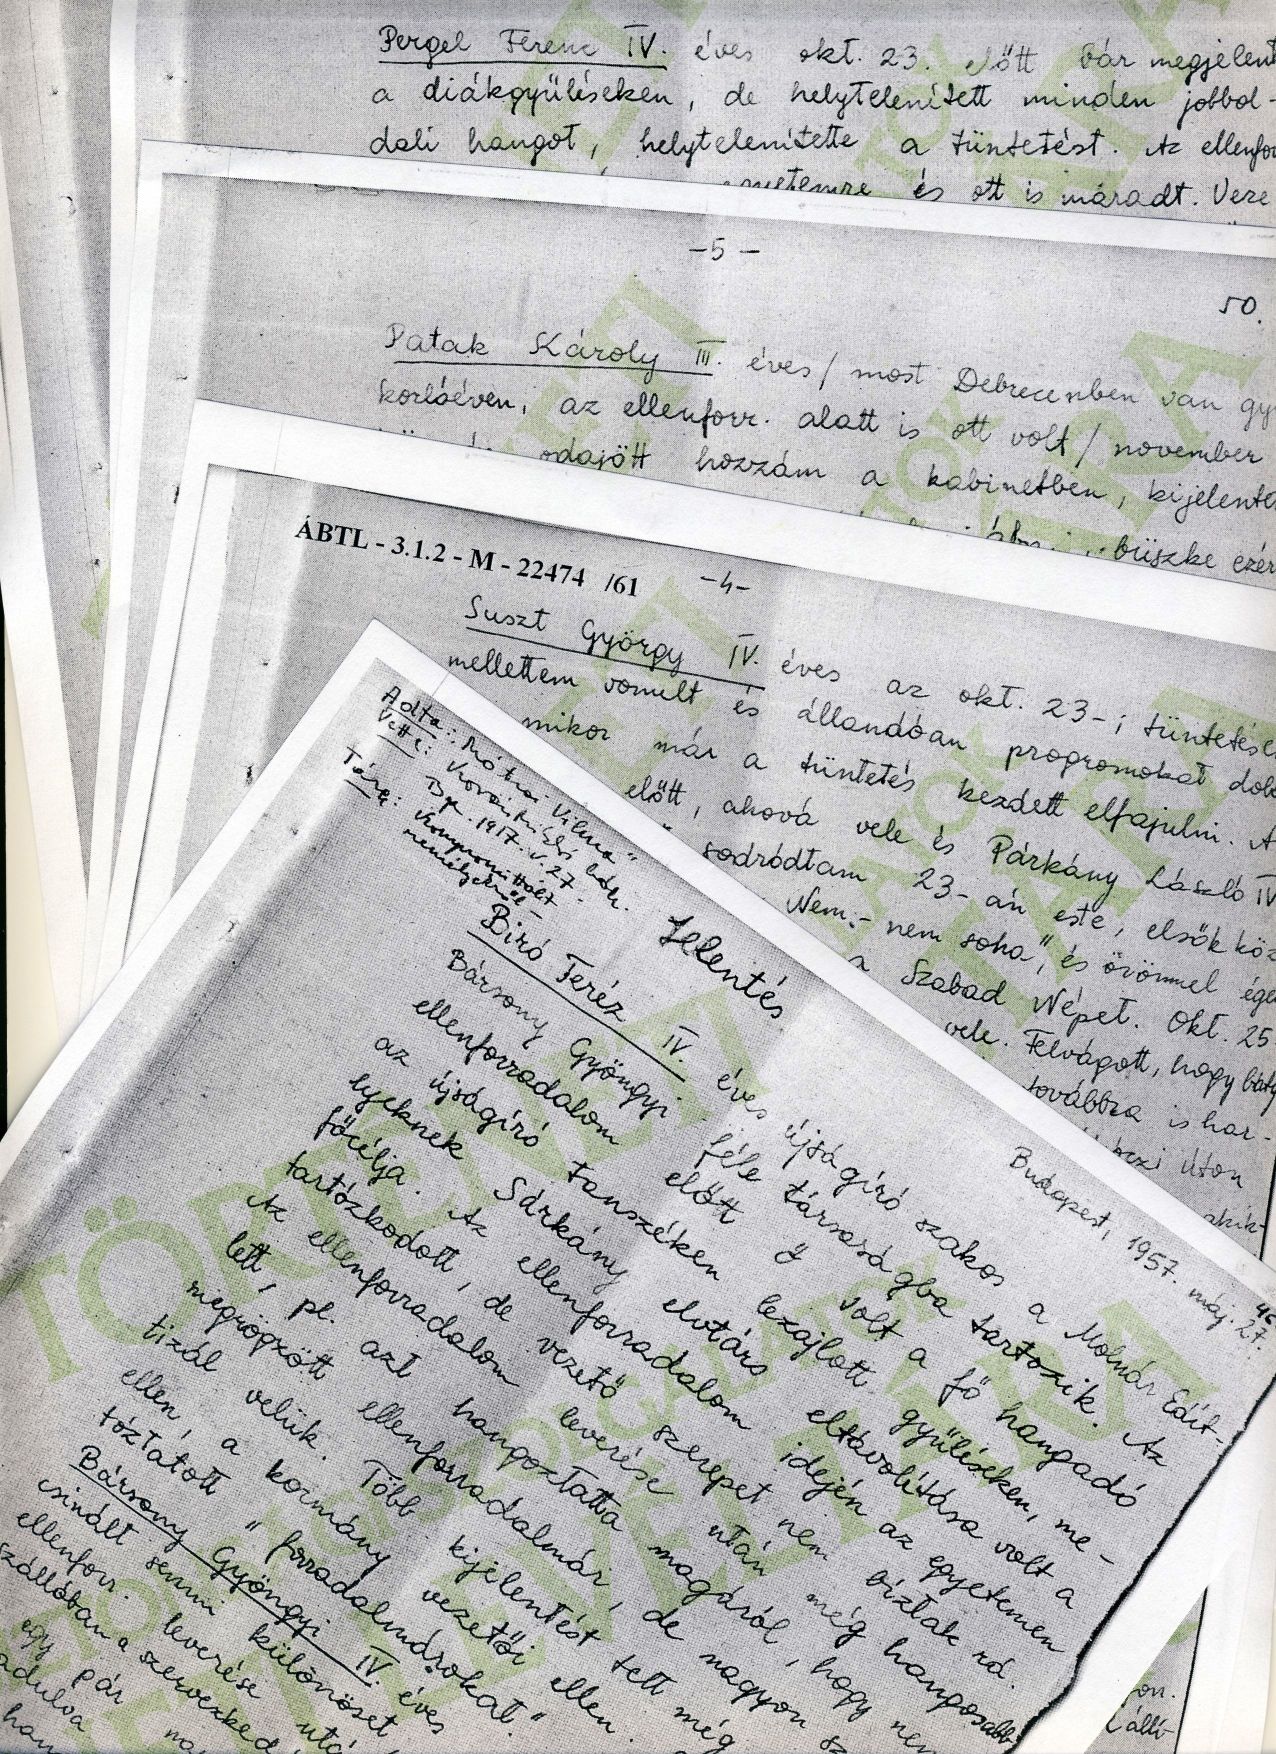 Pergel Ferenc IV. éves okt. 23. előtt bár megjelent
a diákgyűléseken, de helytelenített minden jobbol-
dali hangot, helytelenítette a tüntetést. Az ellenfor
és ott is maradt. Veze
-5-
50.
Patak Károly III. éves / most Debrecenben van gy
korlóéven, az ellenforr. alatt is ott volt / november
odajött hozzám a kabinetben, kijelente
büszke ezér
ÁBTL - 3.1.2 - M - 22474 /61
-4-
Suszt György IV. éves az okt. 23-i tüntetése
mellettem vonult és állandóan programokat dob
mikor már a tüntetés kezdett elfajulni. A
előtt, ahová vele és Párkány László IV
sodródtam 23-án este, elsők köz
Nem,- nem soha," és örömmel ége
a Szabad Népet. Okt. 25
vele. Felvágott, hogy báty
továbbra is har-
úton
akik-
Adta: Rátkai Vilma"
Vette: 
Bp. 1957. V. 27.
Tárgy: kompromittált
személyekről -
Jelentés
Budapest, 1957. máj. 27.
46
Biró Teréz IV. éves újságíró szakos a Molnár Edit-
Bársony Gyöngyi féle társaságba tartozik. Az
ellenforradalom előtt ő volt a fő hangadó
az újságíró tanszéken lezajlott gyűléseken, me-
lyeknek Sárkány elvtárs eltávolítása volt a
főcélja. Az ellenforradalom idején az egyetemen
tartózkodott, de vezető szerepet nem bíztak rá.
Az ellenforradalom leverése után még hangosabb
lett, pl. azt hangoztatta magáról, hogy nem
megrögzött ellenforradalmár, de nagyon sz
tizál velük. Több kijelentést tett még
ellen, a kormány vezetői ellen
tóztatott "forradalmárokat."
Bársony Gyöngyi IV. éves
csinált semmi különöset
ellenforr. leverése utá
szállóban a szervezked
egy pár
adulva
han
TÖRTÉNETI
LEVÉLTÁRA
on.
álli-